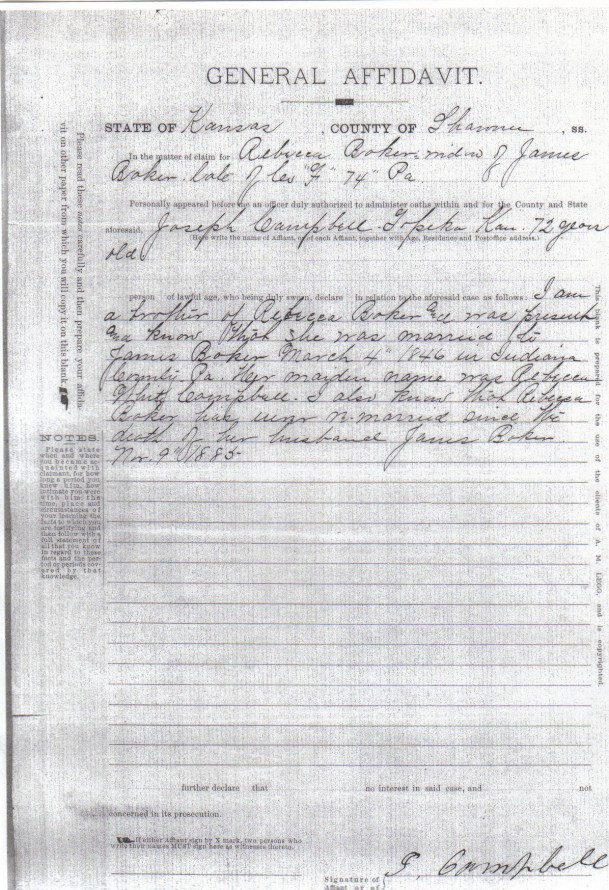 GENERAL AFFIDAVIT.
STATE OF Kansas , COUNTY OF Shawnee , ss.
In the matter of claim for Rebecca Baker widow of James
Baker. Late of Co "F" 74" Pa.
Personally appeared before me an officer duly authorized to administer oaths within and for the County and State
aforesaid, Joseph Campbell Topeka Kan. 72 years
(Here write the name of Affiant, or of each Affiant, together with Age, Residence and Postoffice address.)
old
person of lawful age, who being duly sworn, declare in relation to the aforesaid case as follows: I am
a brother of Rebecca Baker and was present
and know that she was married to
James Baker March 4" 1846 in Indiana
County Pa. Her maiden name was Rebecca
Campbell. I also know that Rebecca
Baker has never re-married since the
death of her husband James Baker
Nov. 9" 1885
further declare that no interest in said case, and not
concerned in its prosecution.
If either Affiant sign by X mark, two persons who
write their names MUST sign here as witnesses thereto.
J. Campbell
Signature of
Affiant or of
Please read these notes carefully and then prepare your affida-
vit on other paper from which you will copy it on this blank
NOTES.
Please state
when and where
you became ac-
quainted with
claimant, for how
long a period you
knew him, how
intimate you were
with him; the
time, place and
circumstances of
your learning the
facts to which you
are testifying and
then follow with a
full statement of
all that you know
in regard to these
facts and the per-
iod or periods cov-
ered by that
knowledge.
This blank is prepared for the use of the clients of A. M. LEGG, and is copyrighted.